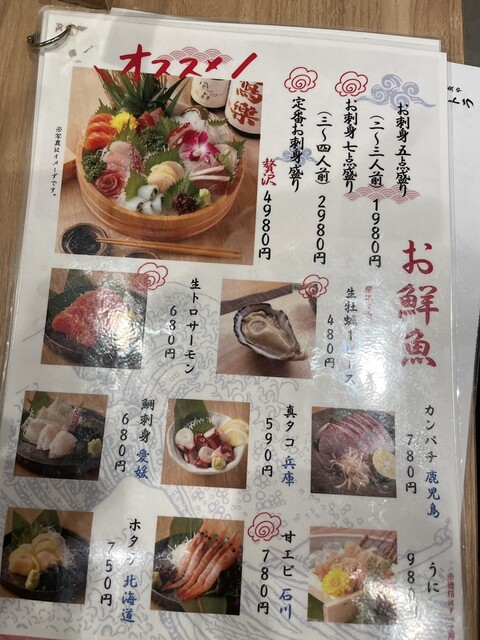 オススメ!
お鮮魚
お刺身五点盛り
(二〜三人前) 1980円
お刺身七点盛り
(三〜四人前) 2980円
定番お刺身盛り
贅沢 4980円
※写真はイメージです。
生牡蠣1ピース
480円
生トロサーモン
680円
カンパチ 鹿児島
780円
真タコ 兵庫
590円
鯛刺身 愛媛
680円
うに
980円
甘エビ 石川
780円
ホタテ 北海道
750円